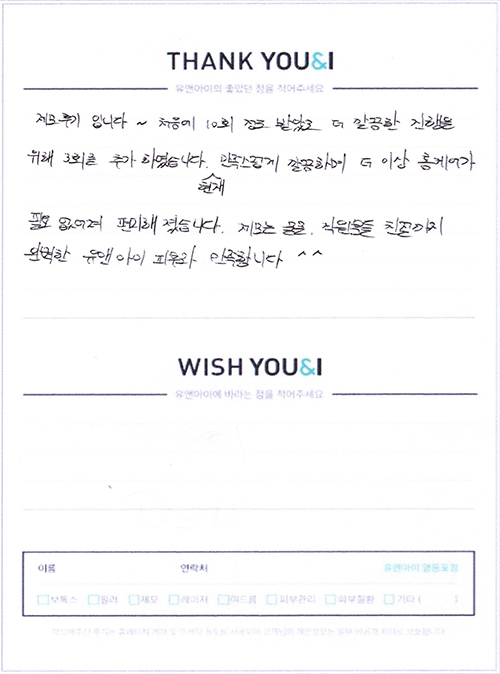 THANK YOU&I
유앤아이의 좋았던 점을 적어주세요
제모후기 입니다 ~ 처음에 10회 정도 받았고 더 깔끔한 진행을
위해 3회를 추가 하였습니다. 만족스럽게 깔끔하며 더 이상 홈케어가
현재
필요 없어져 편리해 졌습니다. 제모는 물론, 직원분들 친절까지
완벽한 유앤아이 피부과 만족합니다 ^^
WISH YOU&I
유앤아이에 바라는 점을 적어주세요
이름 연락처 유앤아이
보톡스 필러 제모 레이저 여드름 피부관리 피부질환 기타 ( )